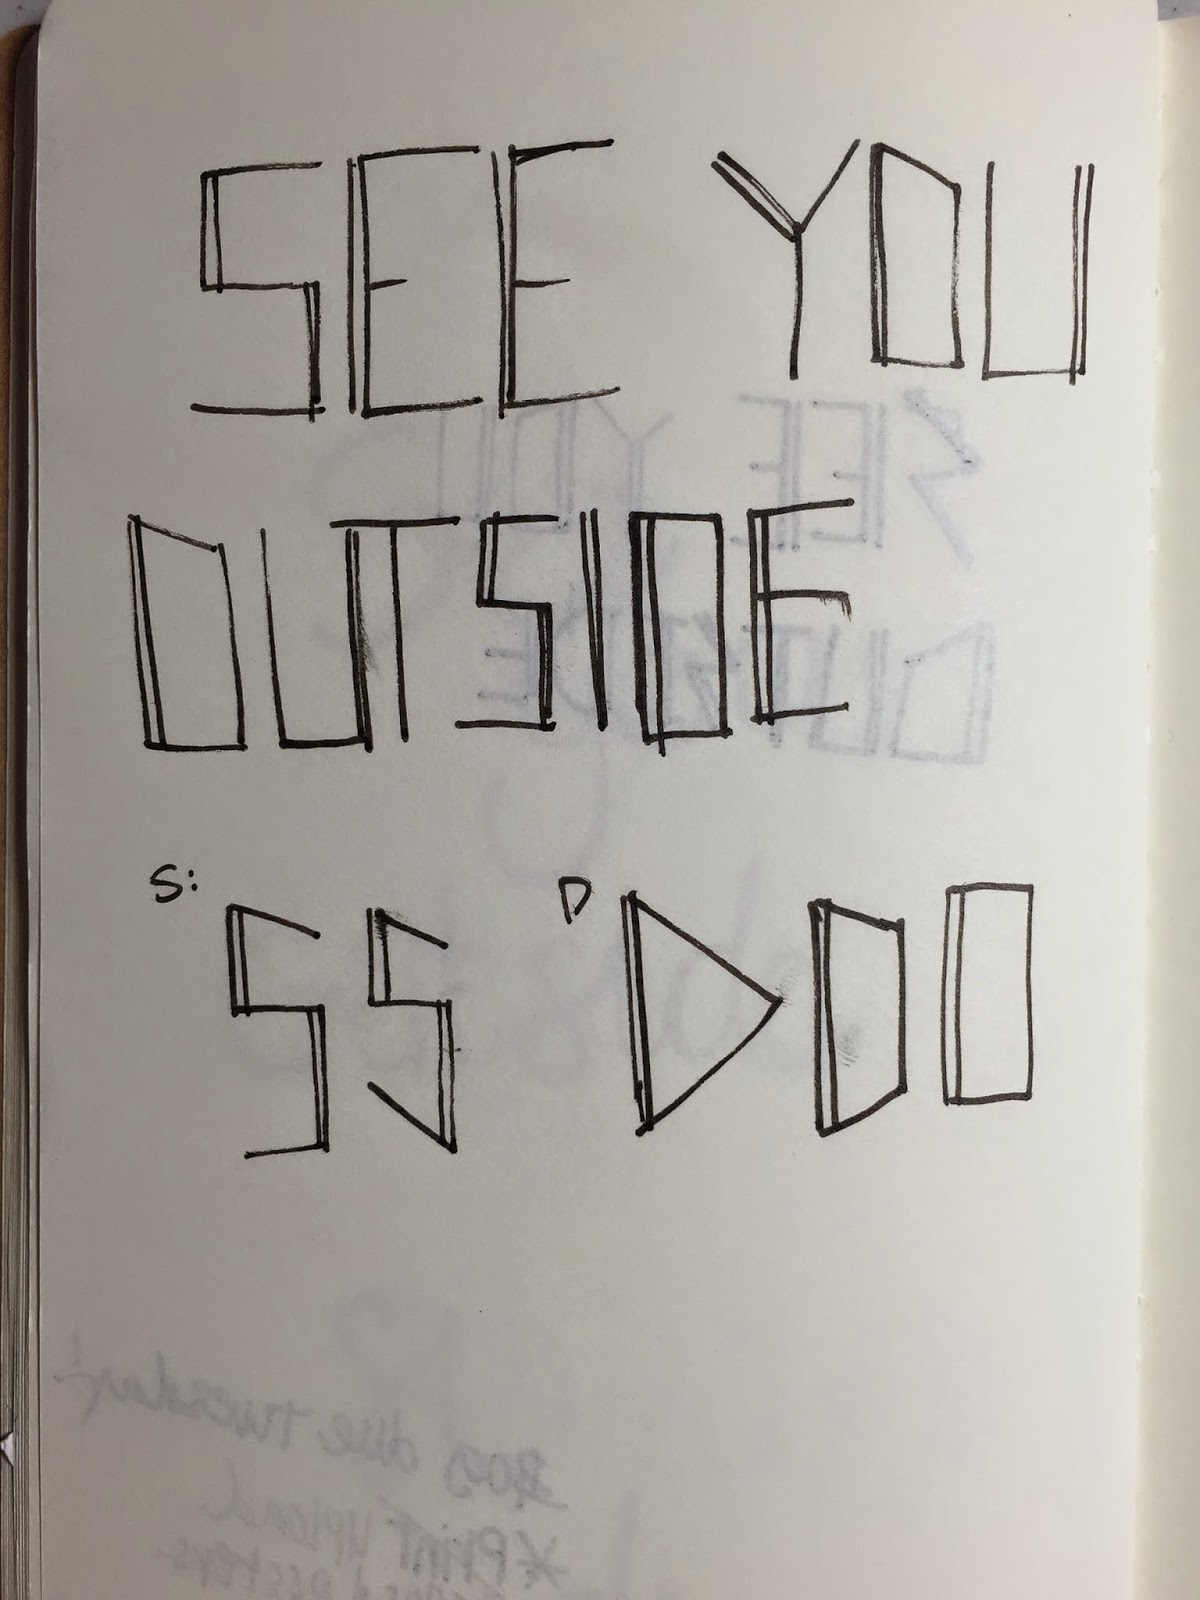 SEE YOU
OUTSIDE
S: S S D D D D